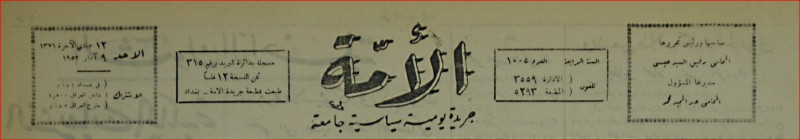 صاحبها ورئيس تحريرها
المحامي رئيس السيد عيسى
مديرها المسؤول
المحامي عبد السيد محمد
السنة الرابعة العدد ١٠٠٥
تلفون الادارة ٣٥٥٩
المطبعة ٥٢٩٣
الأمة
جريدة يومية سياسية جامعة
مسجلة بدائرة البريد برقم ٣١٥
ثمن النسخة ١٢ فلساً
طبعت بمطبعة جريدة الامة - بغداد
الاحد ١٢ جمادي الآخرة ١٣٧١
٩ آذار ١٩٥٢
الاشتراك